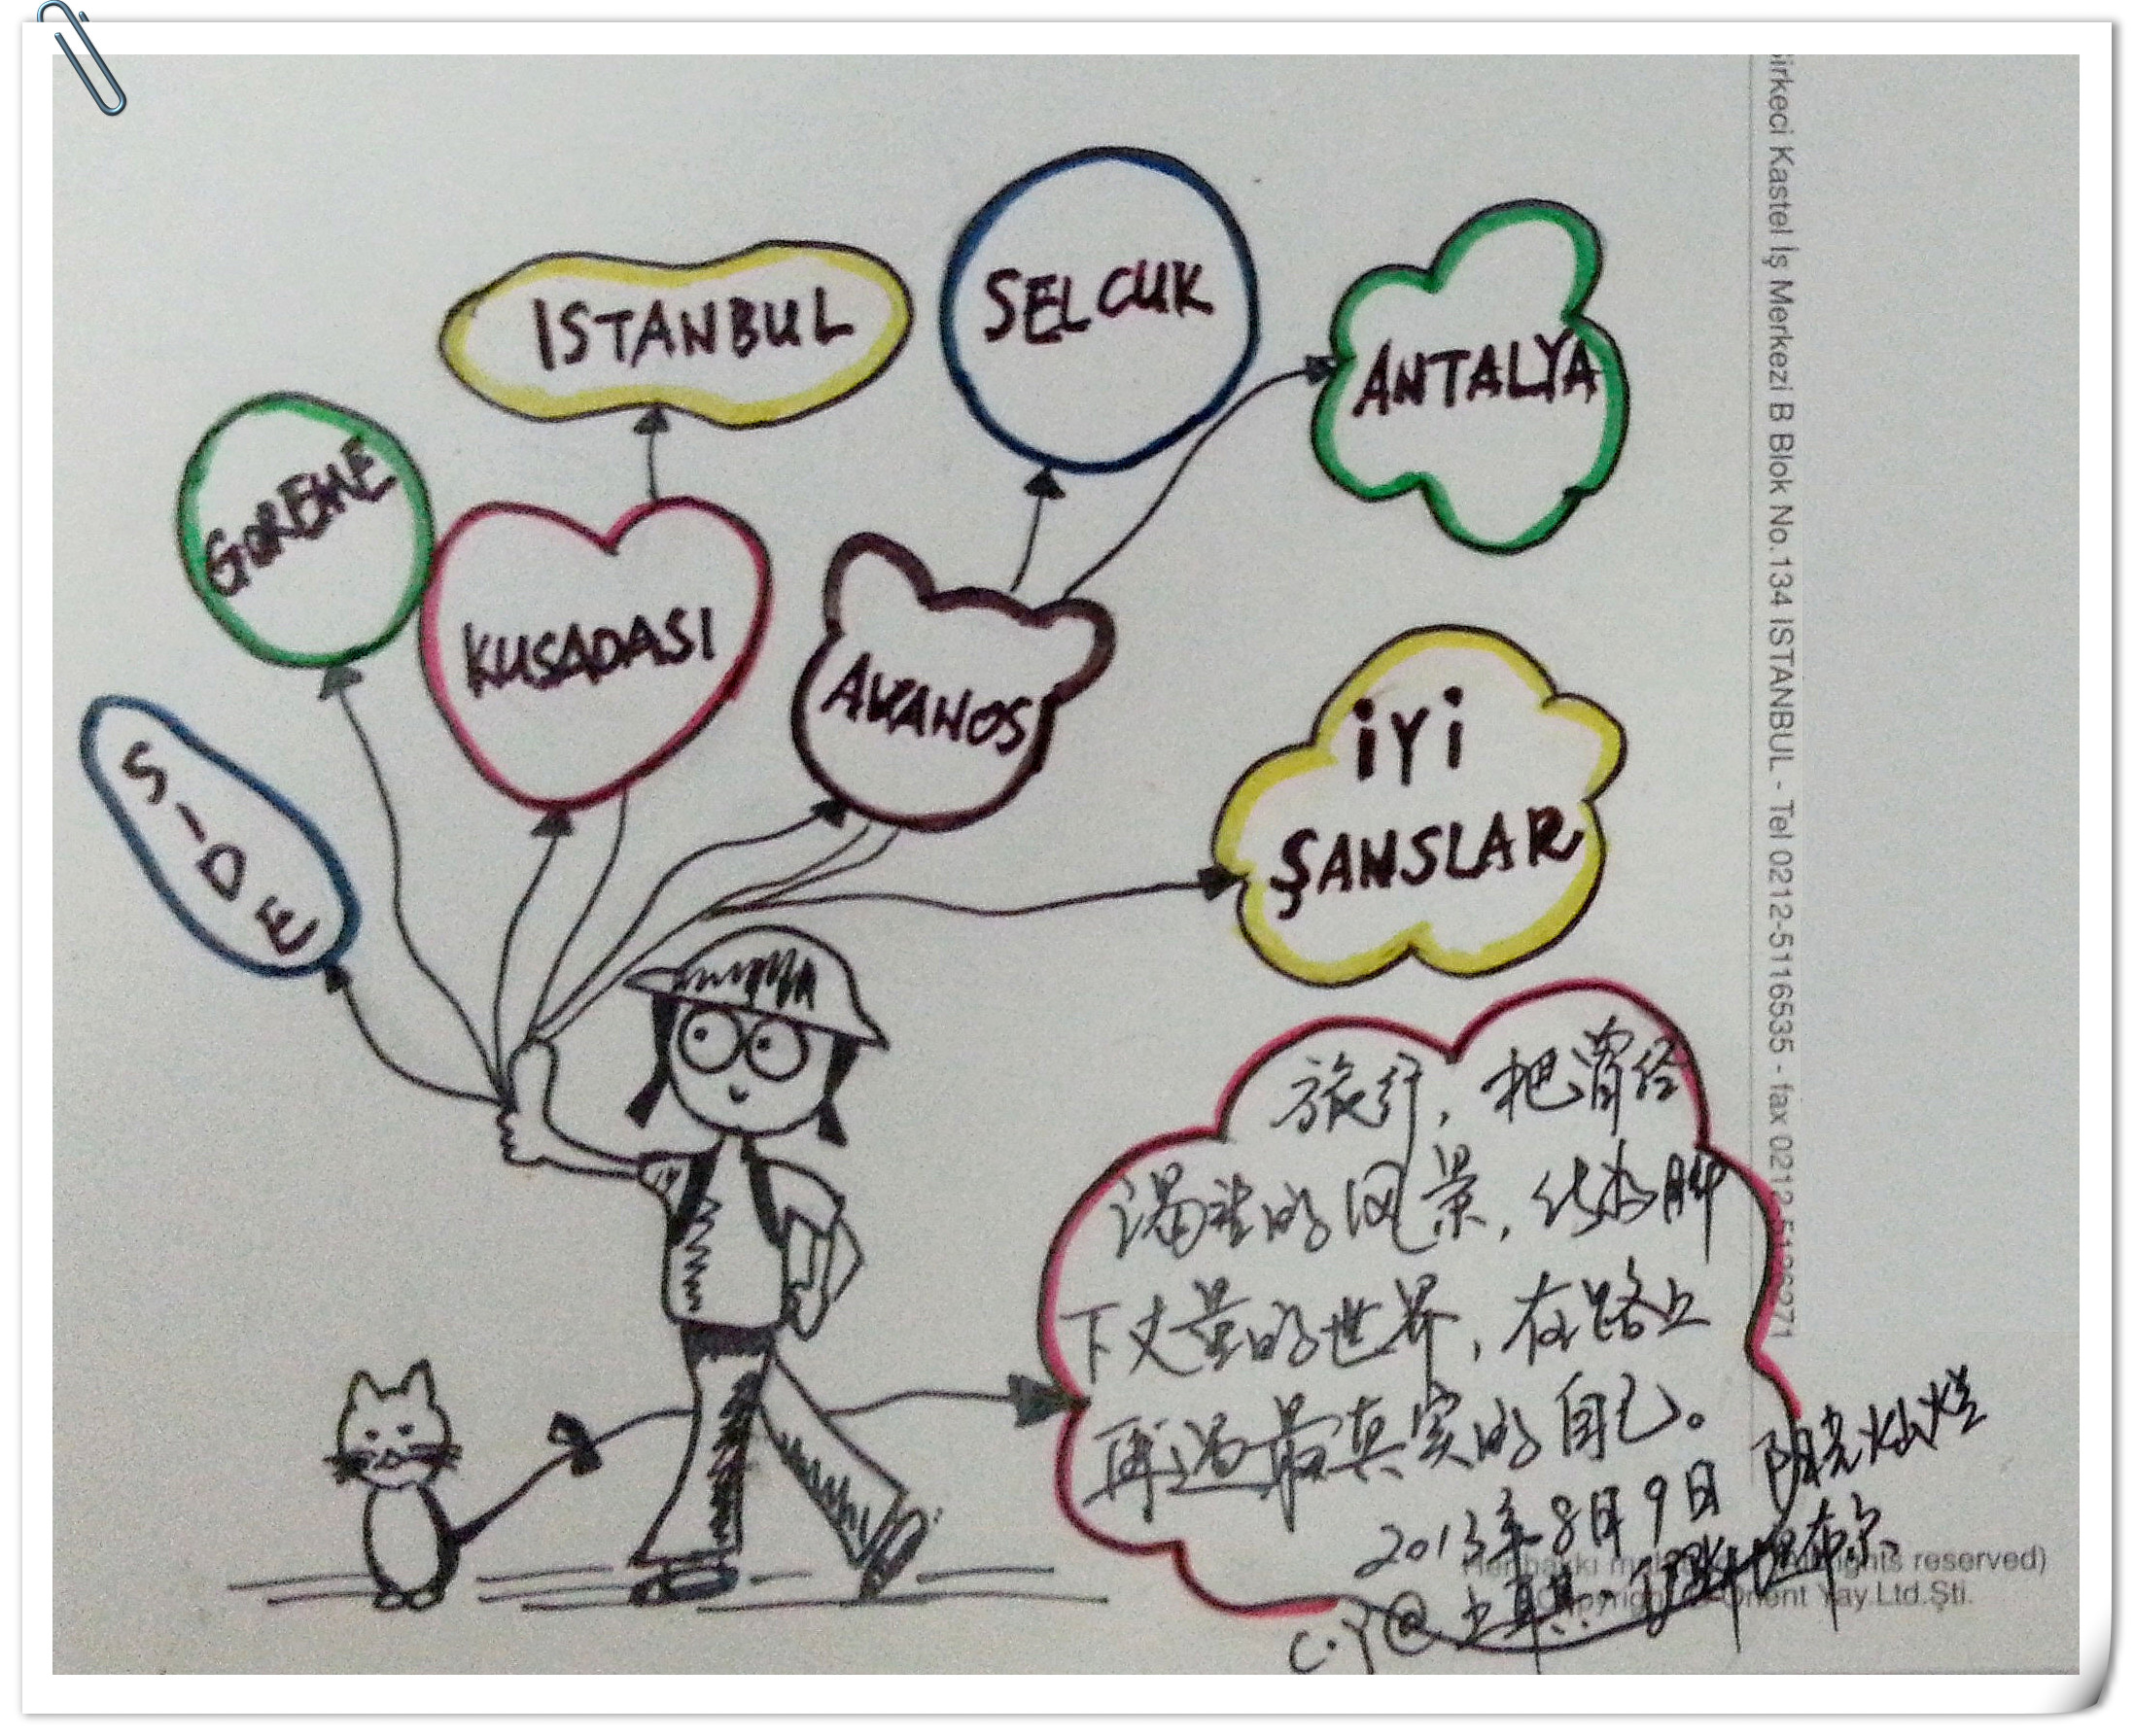 SELCUK
ISTANBUL
ANTALYA
GOREME
KUSADASI
AVANOS
SIDE
İYİ
ŞANSLAR
旅行，把曾经
渴望的风景，化为脚
下丈量的世界，在路上
再遇最真实的自己。
2013年8月9日 阳光灿烂
C.Y@土耳其·伊斯坦布尔
irkeci Kastel İş Merkezi B Blok No.134 ISTANBUL - Tel 0212-5116535 - fax 0212
rights reserved)
Copyright Orient Yay.Ltd.Şti.